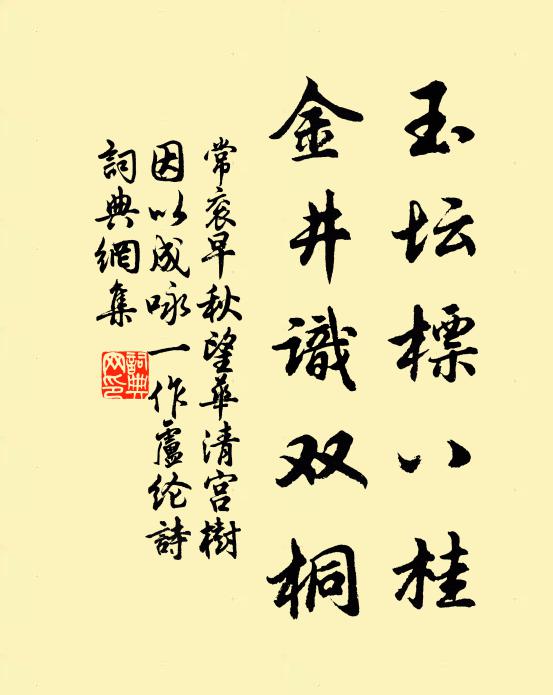 玉坛標八桂
金井識双桐
常衮早秋望华清宫樹
因以成咏一作盧纶詩
詞典網集
詞典網印